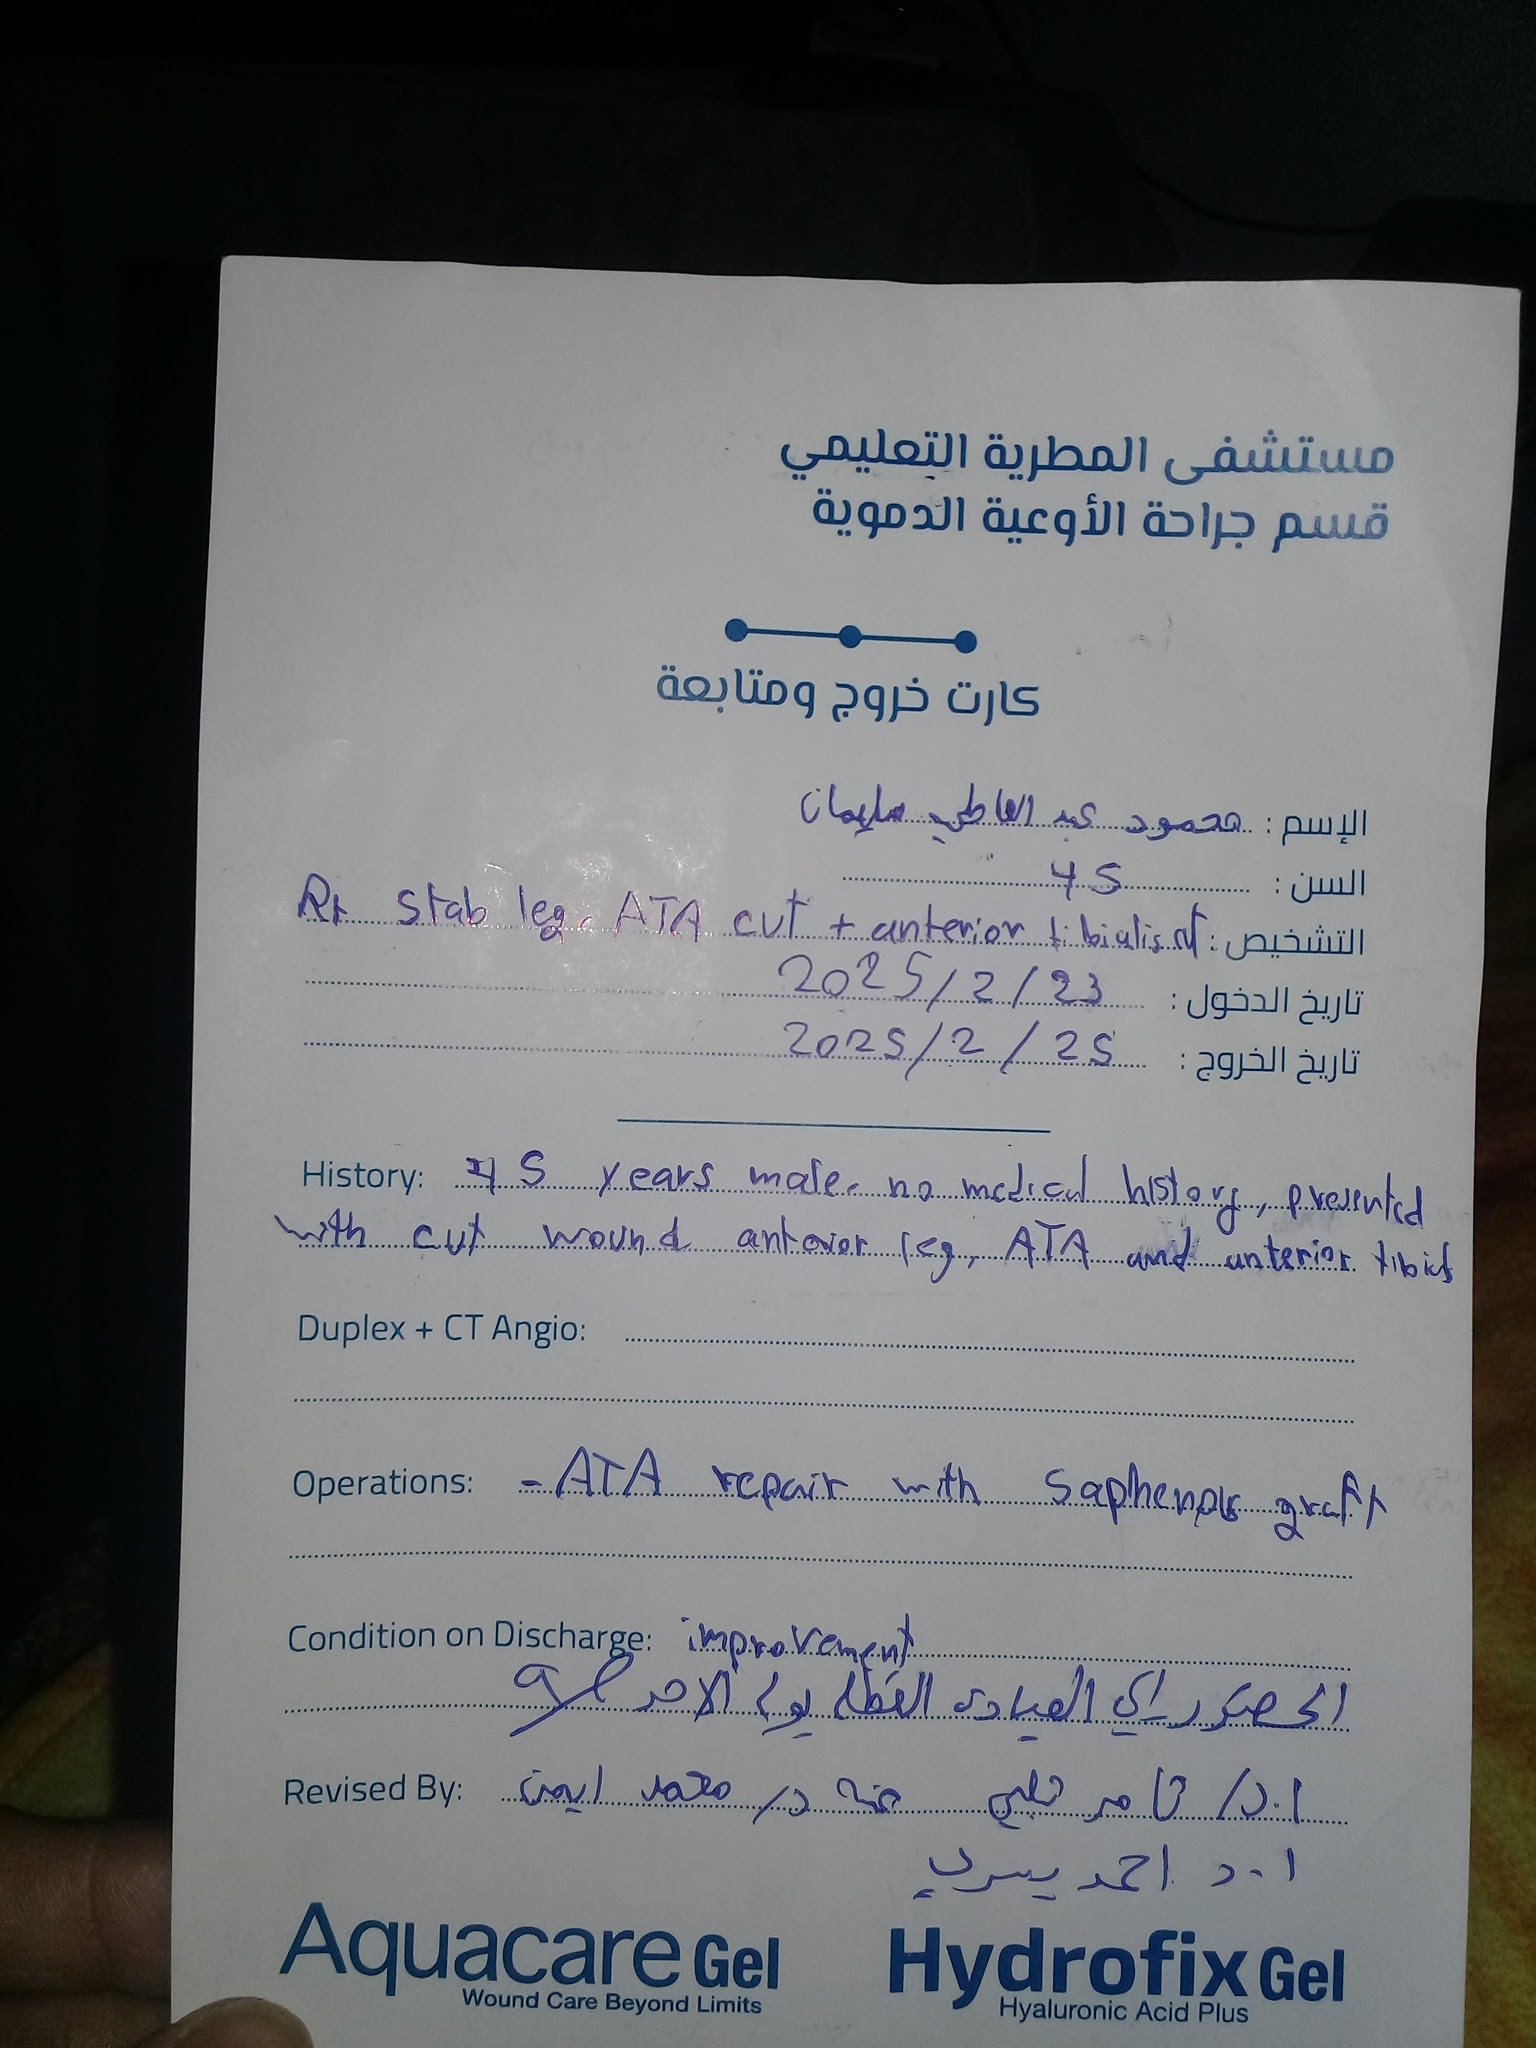 مستشفى المطرية التعليمي
قسم جراحة الأوعية الدموية
كارت خروج ومتابعة
الإسم : محمود عبد العاطي سليمان
السن : 45
التشخيص : Rt stab leg, ATA cut + anterior tibialis
تاريخ الدخول : 2025/2/23
تاريخ الخروج : 2025/2/25
History: 45 years male, no medical history, presented
with cut wound anterior leg, ATA and anterior tibial
Duplex + CT Angio:
Operations: - ATA repair with saphenous graft
Condition on Discharge: improvement
يوم الاحد
Revised By: ا.د/ تامر د/ محمد ايمن
ا.د احمد يسري
Aquacare Gel
Wound Care Beyond Limits
Hydrofix Gel
Hyaluronic Acid Plus